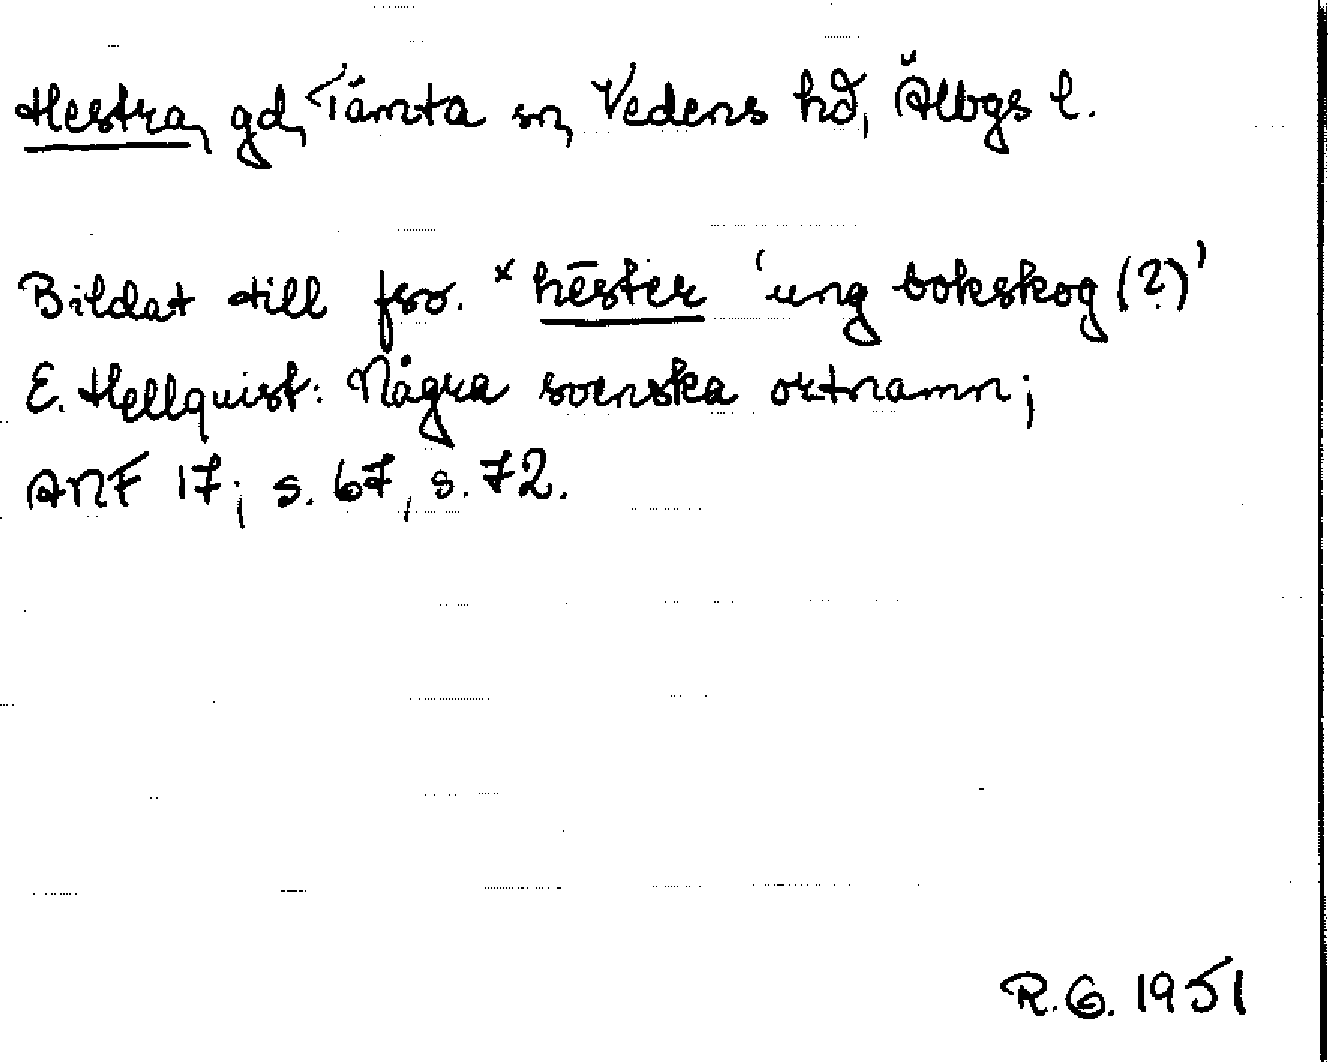 Hestra, gd, Tämta sn, Vedens hd, Älvbgs l.
Bildat till fsv. *hēster 'ung bokskog (?)'
E. Hellquist: Några svenska ortnamn;
ANF 17; s. 67, s. 72.
R.G. 1951